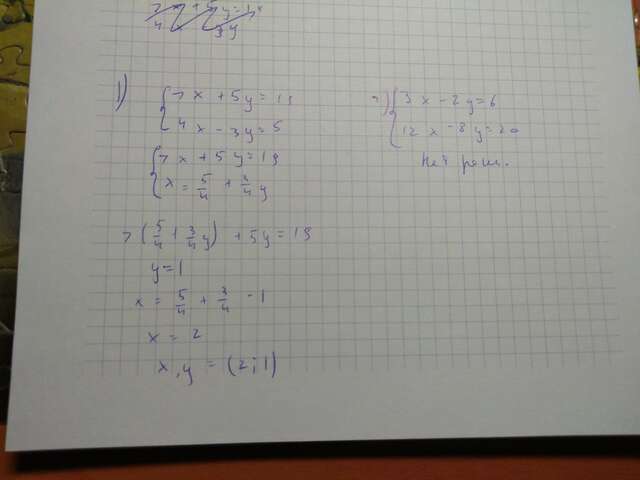 1)
7x + 5y = 19
4x - 3y = 5
7x + 5y = 19
x = 5/4 + 3/4 y
7 (5/4 + 3/4 y) + 5y = 19
y = 1
x = 5/4 + 3/4 · 1
x = 2
x, y = (2; 1)
3x - 2y = 6
12x - 8y = 20
Нет реш.